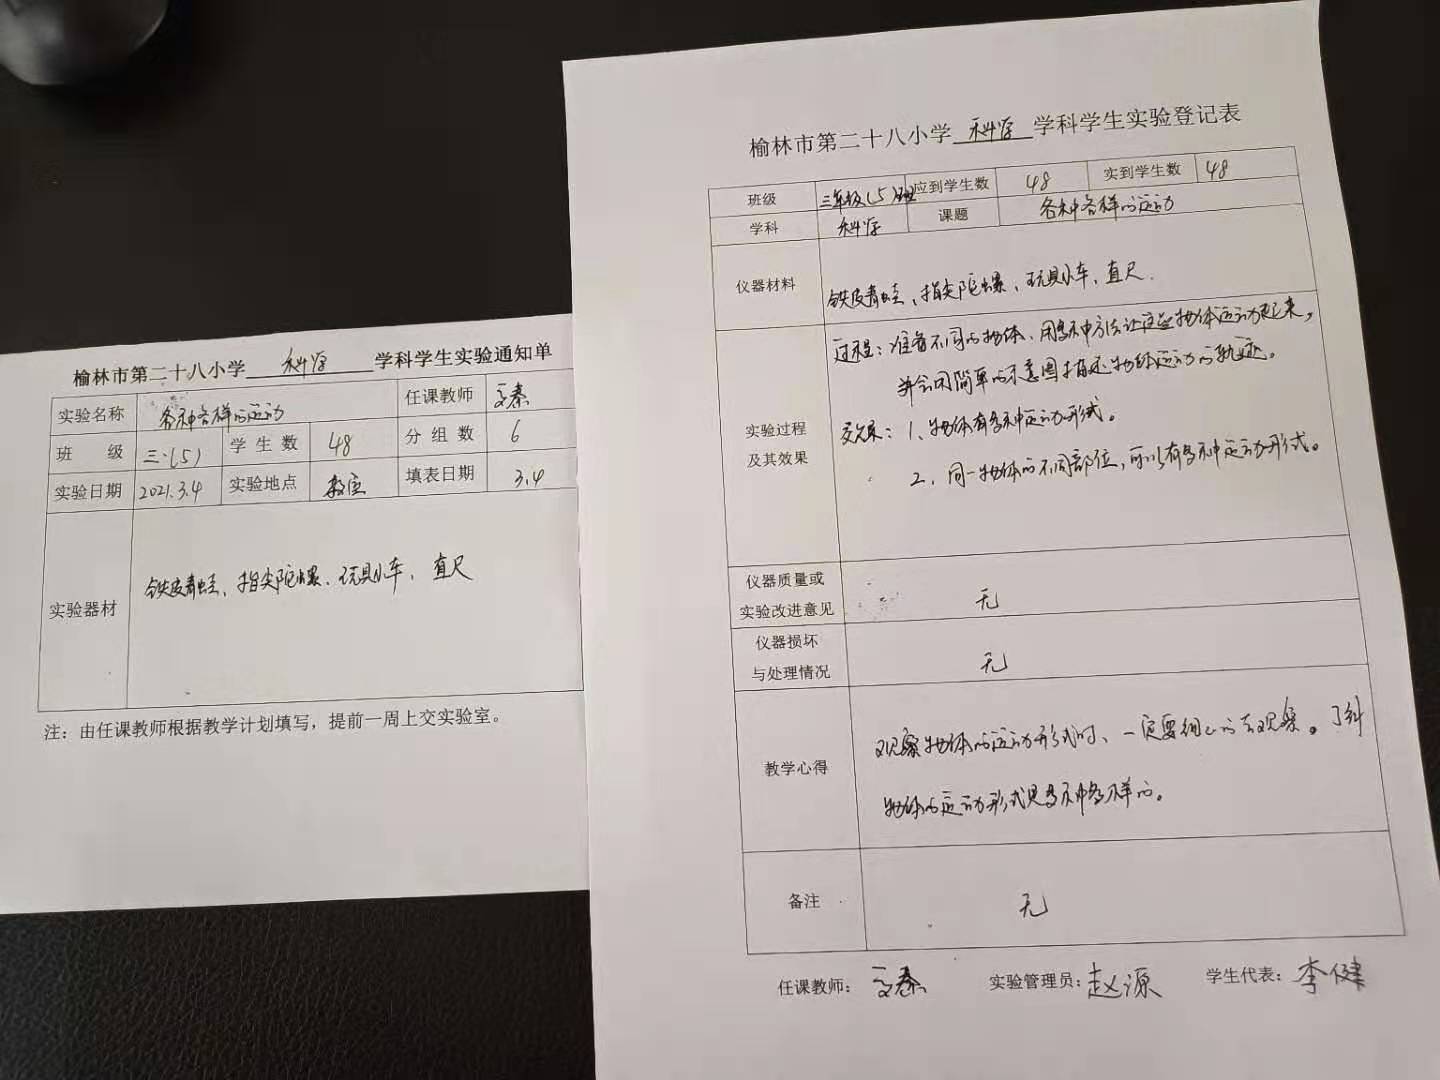 榆林市第二十八小学 科学 学科学生实验通知单
实验名称 各种各样的运动 任课教师 文秦
班 级 三.(5) 学 生 数 48 分 组 数 6
实验日期 2021.3.4 实验地点 教室 填表日期 3.4
实验器材 铁皮青蛙、指尖陀螺、玩具小车、直尺
注：由任课教师根据教学计划填写，提前一周上交实验室。
榆林市第二十八小学 科学 学科学生实验登记表
班级 三年级(5)班 应到学生数 48 实到学生数 48
学科 科学 课题 各种各样的运动
仪器材料 铁皮青蛙、指尖陀螺、玩具小车、直尺.
实验过程
及其效果
过程：准备不同的物体、用多种方法让这些物体运动起来，
并会用简单的示意图描述物体运动的轨迹。
效果：1、物体有多种运动形式。
2、同一物体的不同部位，可以有多种运动形式。
仪器质量或
实验改进意见 无
仪器损坏
与处理情况 无
教学心得
观察物体的运动形式时、一定要细心的去观察。了解
物体的运动形式是多种多样的。
备注 无
任课教师： 文秦 实验管理员： 赵源 学生代表： 李健